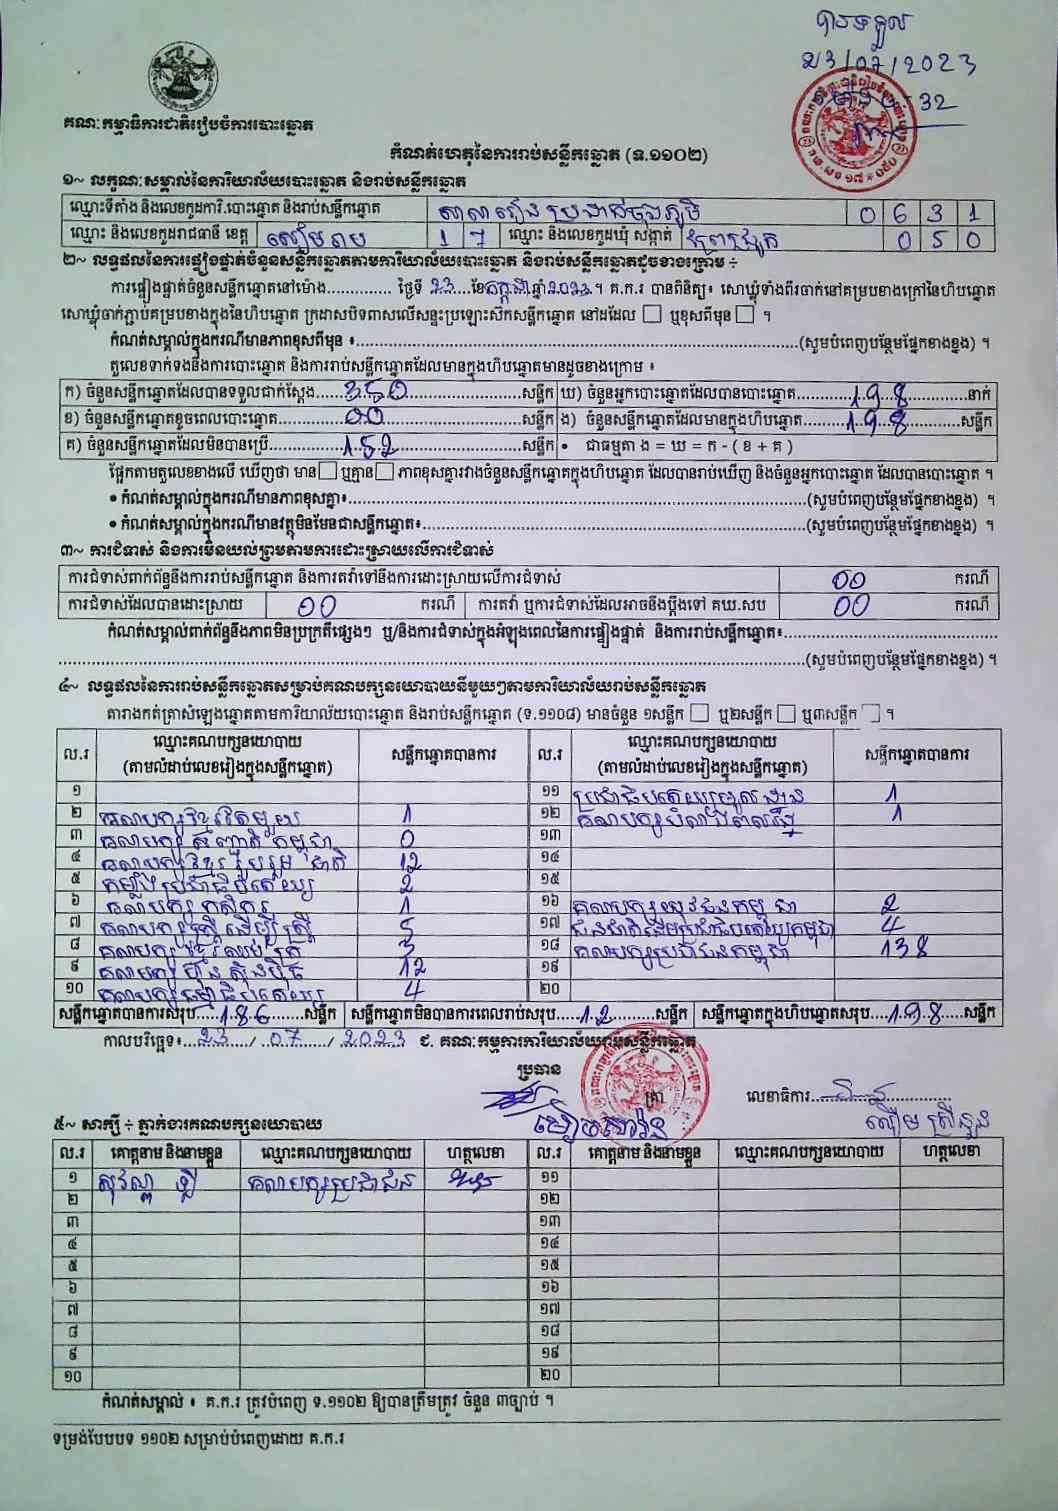 បានទទួល
23/07/2023
ម៉ោង 6 : 32
គណៈកម្មាធិការជាតិរៀបចំការបោះឆ្នោត
កំណត់ហេតុនៃការរាប់សន្លឹកឆ្នោត (ទ.១១០២)
១~ លក្ខណៈសម្គាល់នៃការិយាល័យបោះឆ្នោត និងរាប់សន្លឹកឆ្នោត
ឈ្មោះទីតាំង និងលេខកូដការិ.បោះឆ្នោត និងរាប់សន្លឹកឆ្នោត សាលារៀន 0 6 3 1
ឈ្មោះ និងលេខកូដរាជធានី ខេត្ត សៀមរាប 1 7 ឈ្មោះ និងលេខកូដឃុំ សង្កាត់ 0 5 0
២~ លទ្ធផលនៃការផ្ទៀងផ្ទាត់ចំនួនសន្លឹកឆ្នោតតាមការិយាល័យបោះឆ្នោត និងរាប់សន្លឹកឆ្នោតដូចខាងក្រោម ÷
ការផ្ទៀងផ្ទាត់ចំនួនសន្លឹកឆ្នោតនៅម៉ោង.............. ថ្ងៃទី 23 ខែកក្កដា ឆ្នាំ2023។ គ.ក.រ បានពិនិត្យ៖ សោឃ្លុំទាំងពីរចាក់នៅគម្របខាងក្រៅនៃហិបឆ្នោត
សោឃ្លុំចាក់ភ្ជាប់គម្របខាងក្នុងនៃហិបឆ្នោត ក្រដាសបិទពាសលើសន្ទះប្រឡោះសិកសន្លឹកឆ្នោត នៅដដែល ☐ ឬខុសពីមុន ☐ ។
កំណត់សម្គាល់ក្នុងករណីមានភាពខុសពីមុន ៖..........(សូមបំពេញបន្ថែមផ្នែកខាងខ្នង) ។
តួលេខទាក់ទងនឹងការបោះឆ្នោត និងការរាប់សន្លឹកឆ្នោតដែលមានក្នុងហិបឆ្នោតមានដូចខាងក្រោម ៖
ក) ចំនួនសន្លឹកឆ្នោតដែលបានទទួលជាក់ស្ដែង......350......សន្លឹក ឃ) ចំនួនអ្នកបោះឆ្នោតដែលបានបោះឆ្នោត......198......នាក់
ខ) ចំនួនសន្លឹកឆ្នោតខូចពេលបោះឆ្នោត......00......សន្លឹក ង) ចំនួនសន្លឹកឆ្នោតដែលមានក្នុងហិបឆ្នោត......198......សន្លឹក
គ) ចំនួនសន្លឹកឆ្នោតដែលមិនបានប្រើ......152......សន្លឹក • ជាធម្មតា ង = ឃ = ក - ( ខ + គ )
ផ្អែកតាមតួលេខខាងលើ ឃើញថា មាន ☐ ឬគ្មាន ☐ ភាពខុសគ្នារវាងចំនួនសន្លឹកឆ្នោតក្នុងហិបឆ្នោត ដែលបានរាប់ឃើញ និងចំនួនអ្នកបោះឆ្នោត ដែលបានបោះឆ្នោត ។
• កំណត់សម្គាល់ក្នុងករណីមានភាពខុសគ្នា៖..........(សូមបំពេញបន្ថែមផ្នែកខាងខ្នង) ។
• កំណត់សម្គាល់ក្នុងករណីមានវត្ថុមិនមែនជាសន្លឹកឆ្នោត៖..........(សូមបំពេញបន្ថែមផ្នែកខាងខ្នង) ។
៣~ ការជំទាស់ និងការមិនយល់ព្រមតាមការដោះស្រាយលើការជំទាស់
ការជំទាស់ពាក់ព័ន្ធនឹងការរាប់សន្លឹកឆ្នោត និងការតវ៉ាទៅនឹងការដោះស្រាយលើការជំទាស់ 00 ករណី
ការជំទាស់ដែលបានដោះស្រាយ 00 ករណី ការតវ៉ា ឬការជំទាស់ដែលអាចនឹងប្ដឹងទៅ គឃ.សប 00 ករណី
កំណត់សម្គាល់ពាក់ព័ន្ធនឹងភាពមិនប្រក្រតីផ្សេងៗ ឬ/និងការជំទាស់ក្នុងអំឡុងពេលនៃការផ្ទៀងផ្ទាត់ និងការរាប់សន្លឹកឆ្នោត៖..........
..........(សូមបំពេញបន្ថែមផ្នែកខាងខ្នង) ។
៤~ លទ្ធផលនៃការរាប់សន្លឹកឆ្នោតសម្រាប់គណបក្សនយោបាយនីមួយៗតាមការិយាល័យរាប់សន្លឹកឆ្នោត
តារាងកត់ត្រាសំឡេងឆ្នោតតាមការិយាល័យបោះឆ្នោត និងរាប់សន្លឹកឆ្នោត (ទ.១១០៨) មានចំនួន ១សន្លឹក ☐ ឬ២សន្លឹក ☐ ឬ៣សន្លឹក ☐ ។
ល.រ ឈ្មោះគណបក្សនយោបាយ (តាមលំដាប់លេខរៀងក្នុងសន្លឹកឆ្នោត) សន្លឹកឆ្នោតបានការ ល.រ ឈ្មោះគណបក្សនយោបាយ (តាមលំដាប់លេខរៀងក្នុងសន្លឹកឆ្នោត) សន្លឹកឆ្នោតបានការ
១ ១១ 1
២ គណបក្សខ្មែរតែមួយ 1 ១២ 1
៣ គណបក្ស សញ្ជាតិកម្ពុជា 0 ១៣
៤ គណបក្សខ្មែររួបរួមជាតិ 12 ១៤
៥ កម្លាំងប្រជាធិបតេយ្យ 2 ១៥
៦ គណបក្ស កសិករ 1 ១៦ គណបក្សយុវជនកម្ពុជា 2
៧ គណបក្សស្ត្រីដើម្បីស្ត្រី 5 ១៧ 4
៨ 3 ១៨ គណបក្សប្រជាជនកម្ពុជា 138
៩ គណបក្ស ហ៊្វុនស៊ិនប៉ិច 12 ១៩
១០ គណបក្សធម្មាធិបតេយ្យ 4 ២០
សន្លឹកឆ្នោតបានការសរុប.....186.....សន្លឹក សន្លឹកឆ្នោតមិនបានការពេលរាប់សរុប.....12.....សន្លឹក សន្លឹកឆ្នោតក្នុងហិបឆ្នោតសរុប.....198.....សន្លឹក
កាលបរិច្ឆេទ៖...23.../...07.../...2023 ជ. គណៈកម្មការការិយាល័យរាប់សន្លឹកឆ្នោត
ប្រធាន
ត្រា លេខាធិការ..........
៥~ សាក្សី ÷ ភ្នាក់ងារគណបក្សនយោបាយ
ល.រ គោត្តនាម និងនាមខ្លួន ឈ្មោះគណបក្សនយោបាយ ហត្ថលេខា ល.រ គោត្តនាម និងនាមខ្លួន ឈ្មោះគណបក្សនយោបាយ ហត្ថលេខា
១ សុវណ្ណ ឡី គណបក្សប្រជាជន ១១
២ ១២
៣ ១៣
៤ ១៤
៥ ១៥
៦ ១៦
៧ ១៧
៨ ១៨
៩ ១៩
១០ ២០
កំណត់សម្គាល់ ៖ គ.ក.រ ត្រូវបំពេញ ទ.១១០២ ឱ្យបានត្រឹមត្រូវ ចំនួន ៣ច្បាប់ ។
ទម្រង់បែបបទ ១១០២ សម្រាប់បំពេញដោយ គ.ក.រ